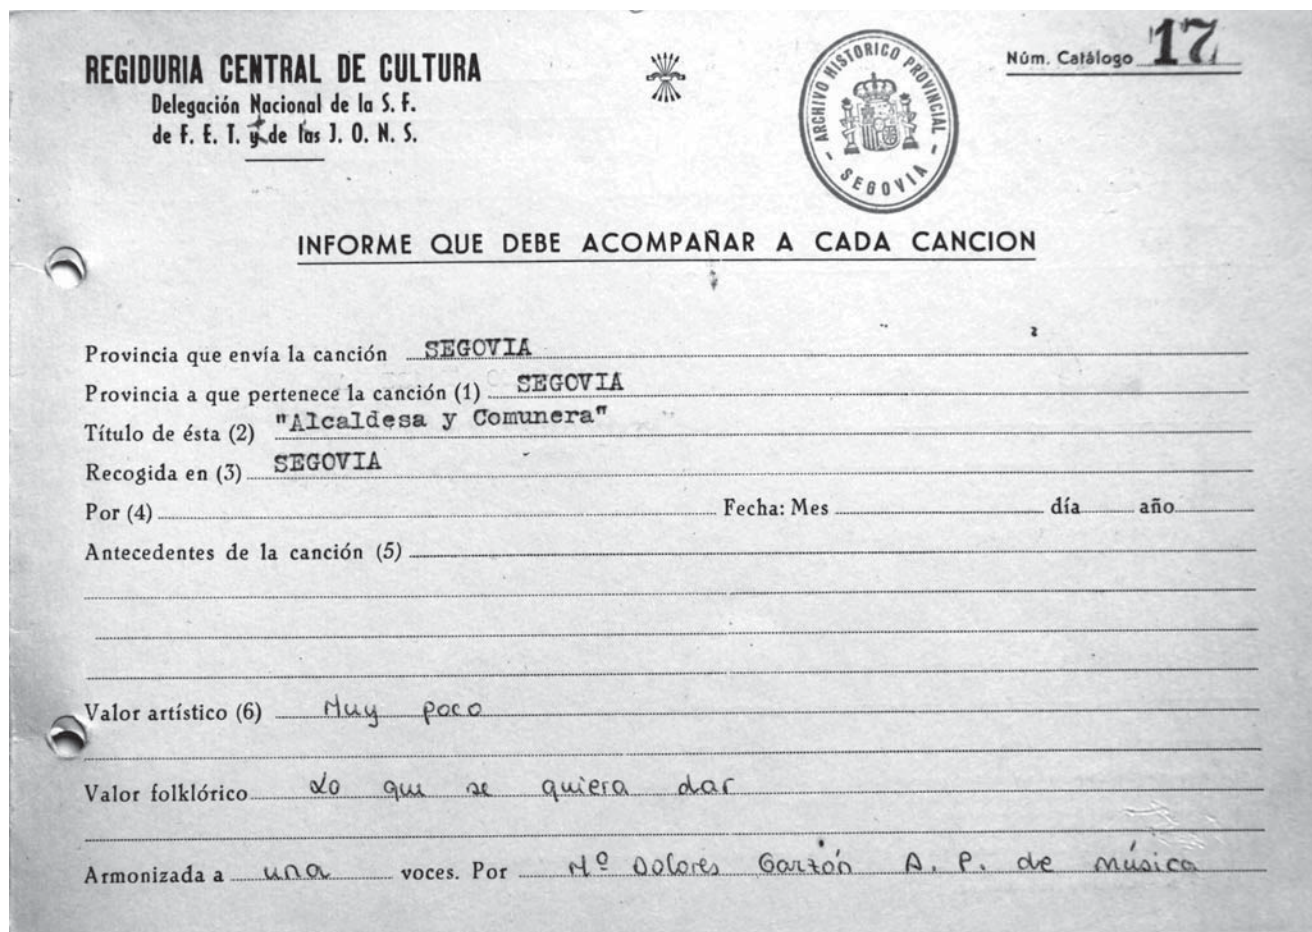 REGIDURIA CENTRAL DE CULTURA
Delegación Nacional de la S. F.
de F. E. T. y de las J. O. N. S.
ARCHIVO HISTORICO PROVINCIAL
- SEGOVIA -
Núm. Catálogo 17
INFORME QUE DEBE ACOMPAÑAR A CADA CANCION
Provincia que envía la canción SEGOVIA
Provincia a que pertenece la canción (1) SEGOVIA
Título de ésta (2) "Alcaldesa y Comunera"
Recogida en (3) SEGOVIA
Por (4) Fecha: Mes día año
Antecedentes de la canción (5)
Valor artístico (6) Muy poco
Valor folklórico Lo que se quiera dar
Armonizada a una voces. Por Mº Dolores Garzón A. P. de música